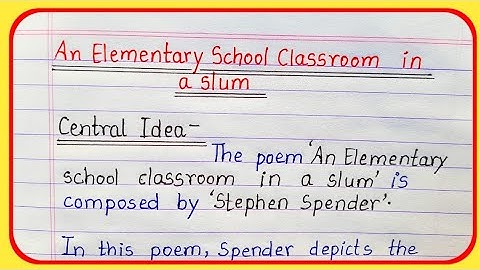 An Elementary School Classroom in
a slum
Central Idea-
The poem 'An Elementary
school classroom in a slum' is
composed by 'Stephen Spender'.
In this poem, Spender depicts the